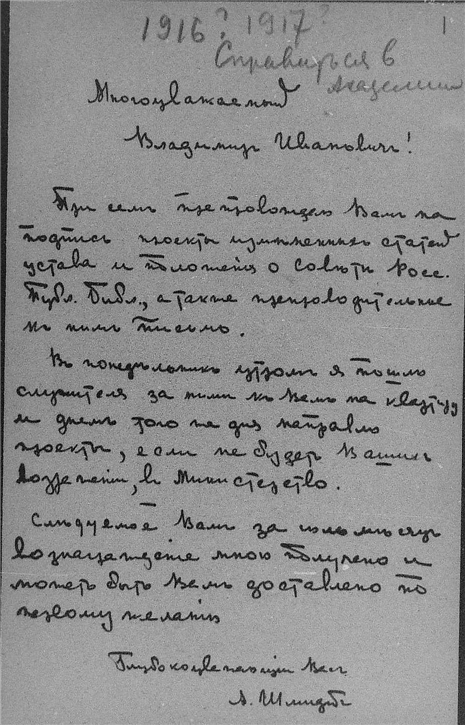 1916? 1917? 1
Справиться в
Академии
Многоуважаемый
Владимиръ Ивановичъ!
При семъ препровождаю Вамъ на
подпись проекты измѣненныхъ статей
устава и Положенія о совѣтѣ Росс.
Публ. Библ., а также препроводительное
къ нимъ письмо.
Въ понедѣльникъ утромъ я пошлю
служителя за ними къ Вамъ на квартиру
и днемъ того же дня направлю
проекты, если не будетъ Вашихъ
возраженій, въ Министерство.
Слѣдуемое Вамъ за мѣсяцъ
вознагражденіе мною получено и
можетъ быть Вамъ доставлено по
первому желанію
Глубокоуважающій Васъ
А. Шмидтъ